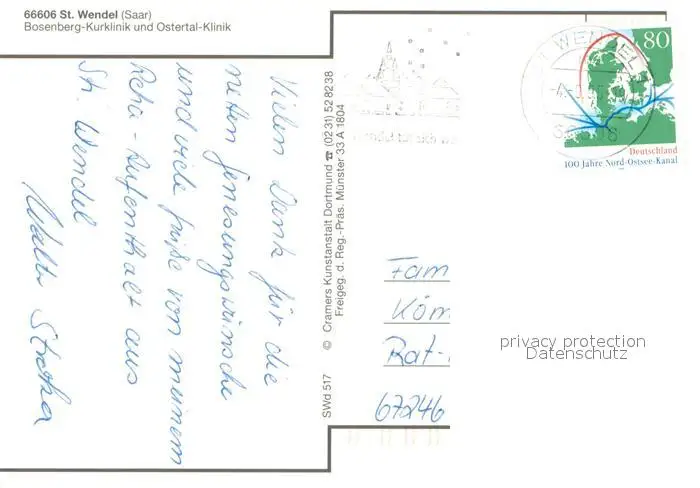 66606 St. Wendel (Saar)
Bosenberg-Kurklinik und Ostertal-Klinik
Vielen Dank für die
netten Genesungswünsche
und viele Grüße von meinem
Reha-Aufenthalt aus
St. Wendel
Walter
SWd 517 © Cramers Kunstanstalt Dortmund ☎ (0231) 52 82 38
Freigeg. d. Reg.-Präs. Münster 33 A 1804
WENDEL
80
Deutschland
100 Jahre Nord-Ostsee-Kanal
Fam
Köm
Rat-
67246
privacy protection
Datenschutz